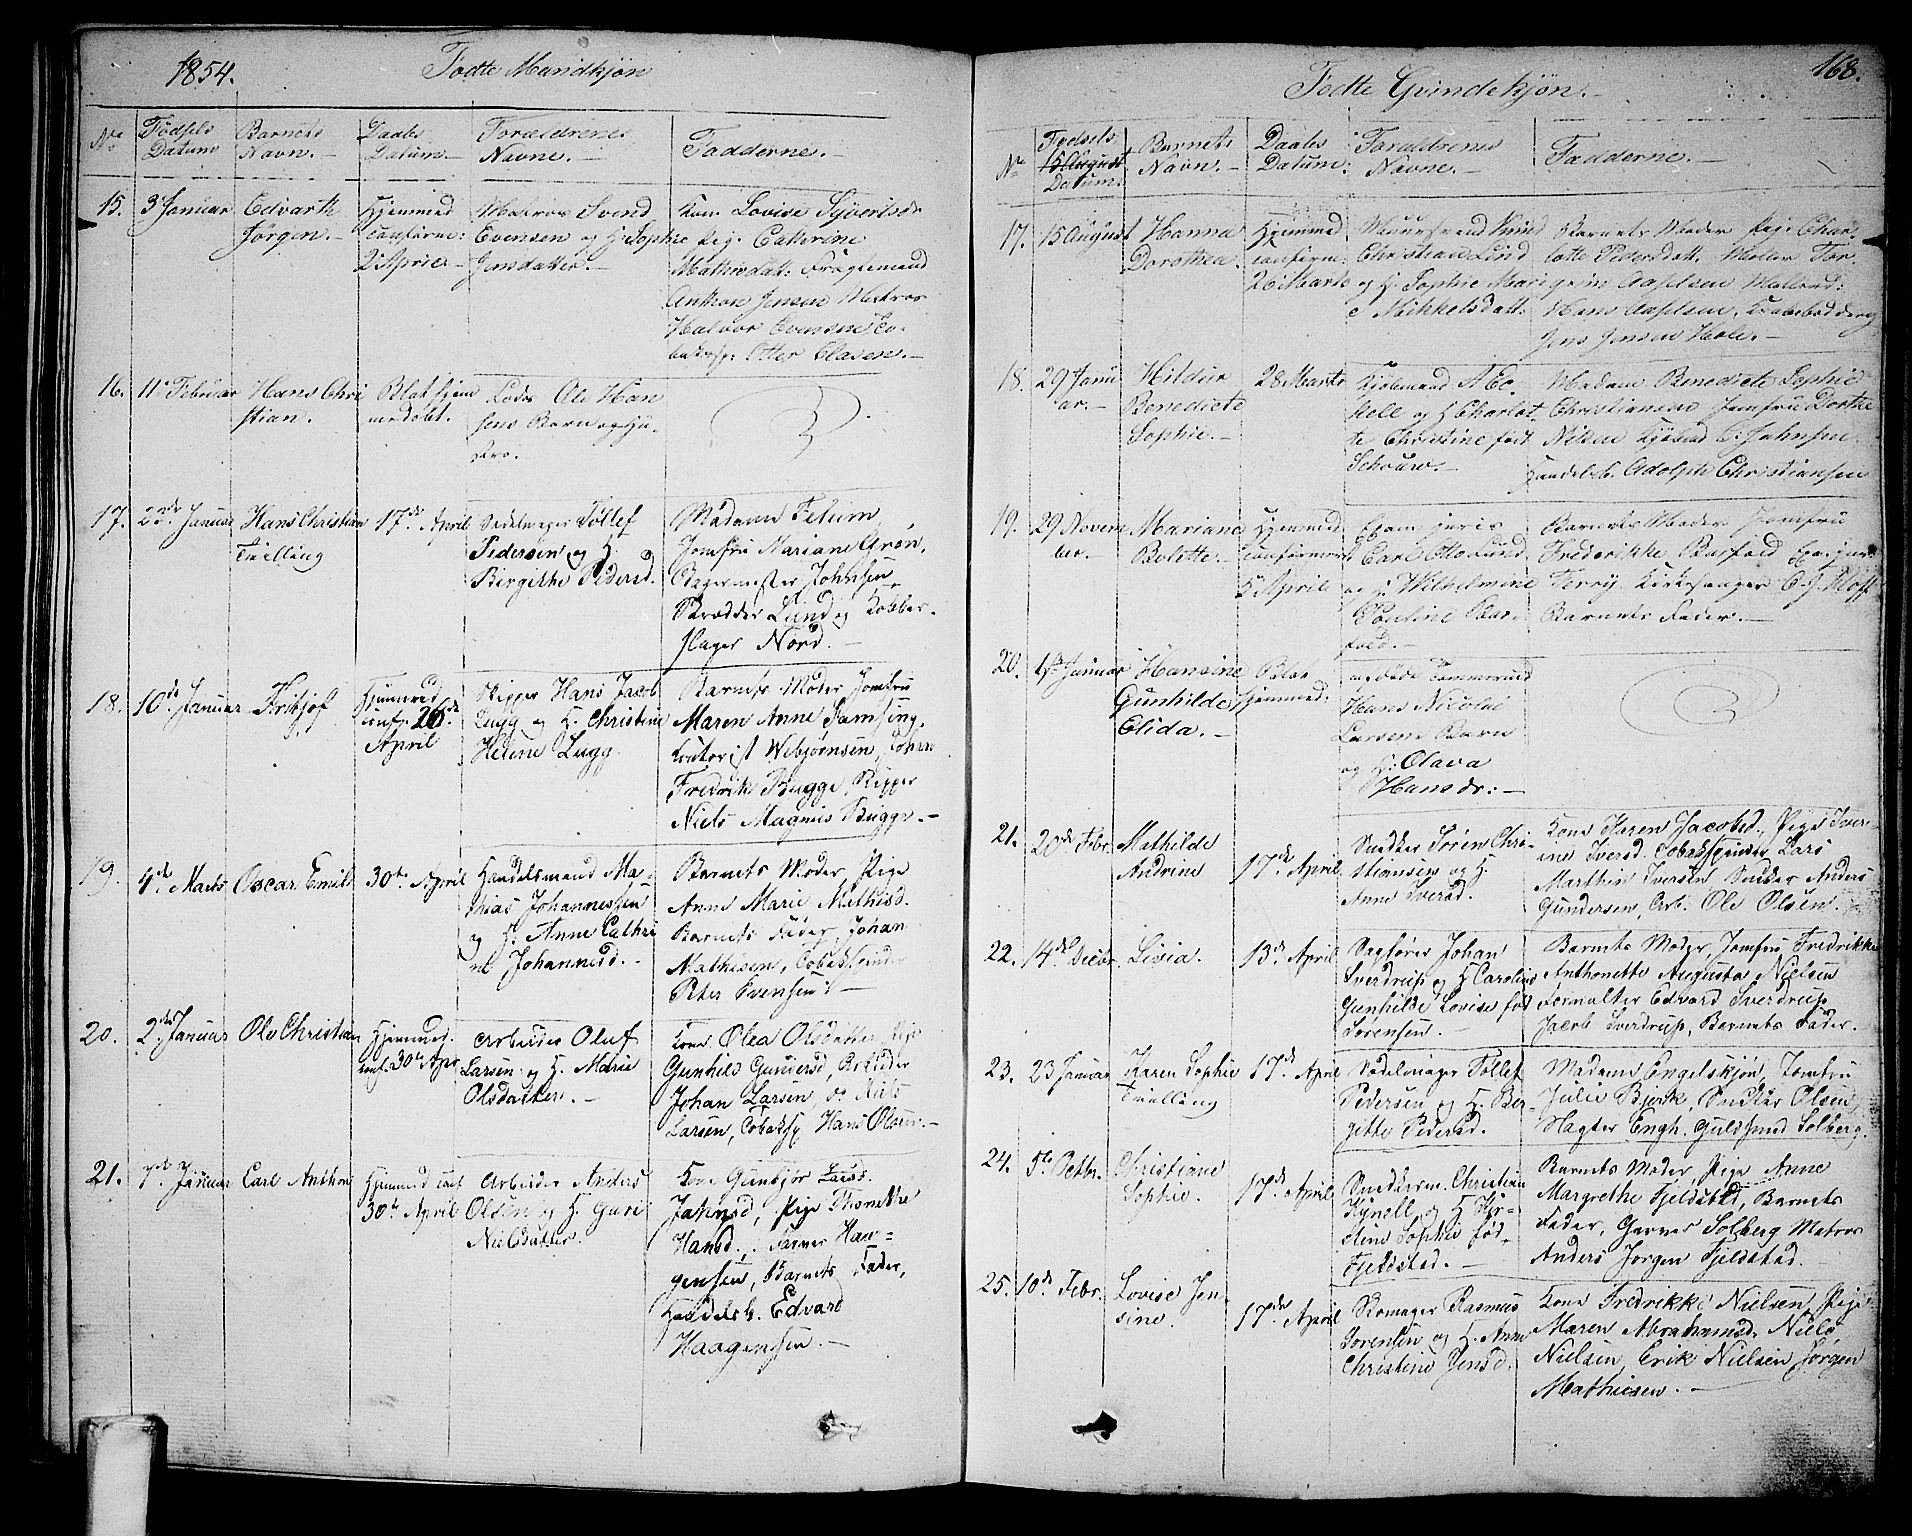 1854.
Fødte Mandkjøn
No
Fødsels Datum
Barnets Navn.
Daabs Datum.
Forældrenes Navne.
Fadderne.
15. 3 Januar
Edvarth
Jørgen.
Hjemmed
confirm:
2 April
Matros Svend
Evensen og H. Sophie
Jensdatter.
Kone Lovise Syvertsdr
Pig. Cathrine
Mathisdatt:
Anthon Jensen Matros
Halvor Evensen
Otter Olasen.
16. 11 Februar
Hans Chri
stian.
Blot hjem
medøbt.
Lods Ole Han
sens Barn og Hu
stro.
17. 23de Januar
Hans Christian
Tvilling
17de April
Sadelmager Tollef
Pedersen og H.
Birgithe Pedersd.
Madame Felum,
Jomfru Mariane Grøn,
Bagermester Johnsen
Skrædder Lund og Kobber-
slager Nord.
18. 10de Januar
Frithjof
Hjemmed
conf. 26de
April
Skipper Hans Jacob
Zugg og H. Christine
Helene Zugg.
Barnets Moder Jomfru
Maren Anne Samsing,
Contorist Webjørnsen, Johan
Fredrik Bugge, Skipper
Niels Magnus Bugge.
19. 4de Marts
Oscar Emil
30te April
Handelsmand Ma-
thias Johannessen
og H. Anne Cathri
ne Johannesd.
Barnets Moder, Pige
Anne Marie Mathisd.
Barnets Fader, Johan
Mathisen, Tobakspinder
Peter Evensen.
20. 2de Januar
Ole Christian
Hjemmed.
conf. 30te Apr
Arbeider Oluf
Larsen og H. Marie
Olsdatter.
Kone Olea Olsdatter, Pige
Gunhild Gundersd, Arbeider
Johan Larsen, do Niels
Larsen, Tobaksp. Hans Olsen.
21. 7de Januar
Carl Anthon
Hjemmed conf
30te April
Arbeider Anders
Olsen og H. Guri
Nielsdatter.
Kone Gunbjør Larsd.
Jahnsd, Pige Thomette
Hansd., Farver Haa-
gensen, Barnets Fader,
Handelsb. Edvard
Haagensen.
168.
Fødte Qvindekjøn.
No
Fødsels
15 August
Datum.
Barnets Navn.
Daabs Datum.
Forældrenes Navne.
Fadderne.
17. 15 August
Hanna
Dorothea.
Hjemmed
confirm:
26 Marts
Muursvend Knud
Christian Lind
og H. Sophie Mari
e Mikkelsdatt.
Barnets Moder Pige Char-
lotte Pedersdatt. Møller Tor-
grim Axelsen
Hans Axelsen,
Jens Jensen Hole.
18. 29 Janu
ar.
Hildur
Benedicte
Sophie.
28 Marts
Kjøbmand
og H Charlot
te Christine født
Schouw.
Madam Benedicte Sophie
Christiansen Jomfru Dorthe
Nilsen Kjøbmd C. Jahnsen
Handelsb. Adolph Christiansen
19. 29 Novem
ber.
Mariane
Bolette.
Hjemmed
confirmert
5 April
Exam. juris
Carl Otto Lund
og H. Wilhelmine
Pauline Bar-
fod.
Barnets Moder Jomfru
Frederikke Barfod Ex. juris
Ferry Kirkesanger
Barnets Fader.
20. 1ste Januar
Hansine
Gunhilde
Elida.
Blot
hjemmed:
afdøde Tømmermd
Hans Nicolai
Larsens Barn
og H: Olava
Hansdr:
21. 20de Febr.
Mathilde
Andrine
17de April
Snedker Søren Chri-
stiansen og H.
Anne Iversd.
Kone Karen Jacobsd, Pige Iver-
ine Iversd. Tobakspinder Lars
Marthin Iversen Snedker Anders
Gundersen, Arb. Ole Olsen.
22. 14de Decbr.
Livia.
13de April
Sagfører Johan
Sverdrup og H Caroline
Gunhilde Lovise fød
Sørensen.
Barnets Moder, Jomfru Fredrikke
Anthonette Augusta Nielsen
Forvalter Edvard Sverdrup,
Jacob Sverdrup, Barnets Fader.
23. 23 Januar
Karen Sophie
Tvilling
17de April
Sadelmager Tollef
Pedersen og H. Ber-
gitte Pedersd.
Madame Engelskjøn, Jomfru
Julie Bjerk, Snedker Olsen,
Magter Engh. Guldsmed Solberg.
24. 5te Octbr.
Christiane
Sophie.
17de April
Snedkerm. Christian
Kynell og H Kir-
stine Sophie fød
Fjeldstad.
Barnets Moder, Pige Anne
Margrethe Fjeldstad, Barnets
Fader, Garver Solberg Matros
Anders Jørgen Fjeldstad.
25. 10de Febr.
Lovise Jen-
sine.
17de April
Skomager Rasmus
Sørensen og H. Anne
Christine Jensd.
Kone Fredrikke Nielsen, Pige
Maren Abrahamsd. Niels
Nielsen, Erik Nielsen, Jørgen
Mathiesen.